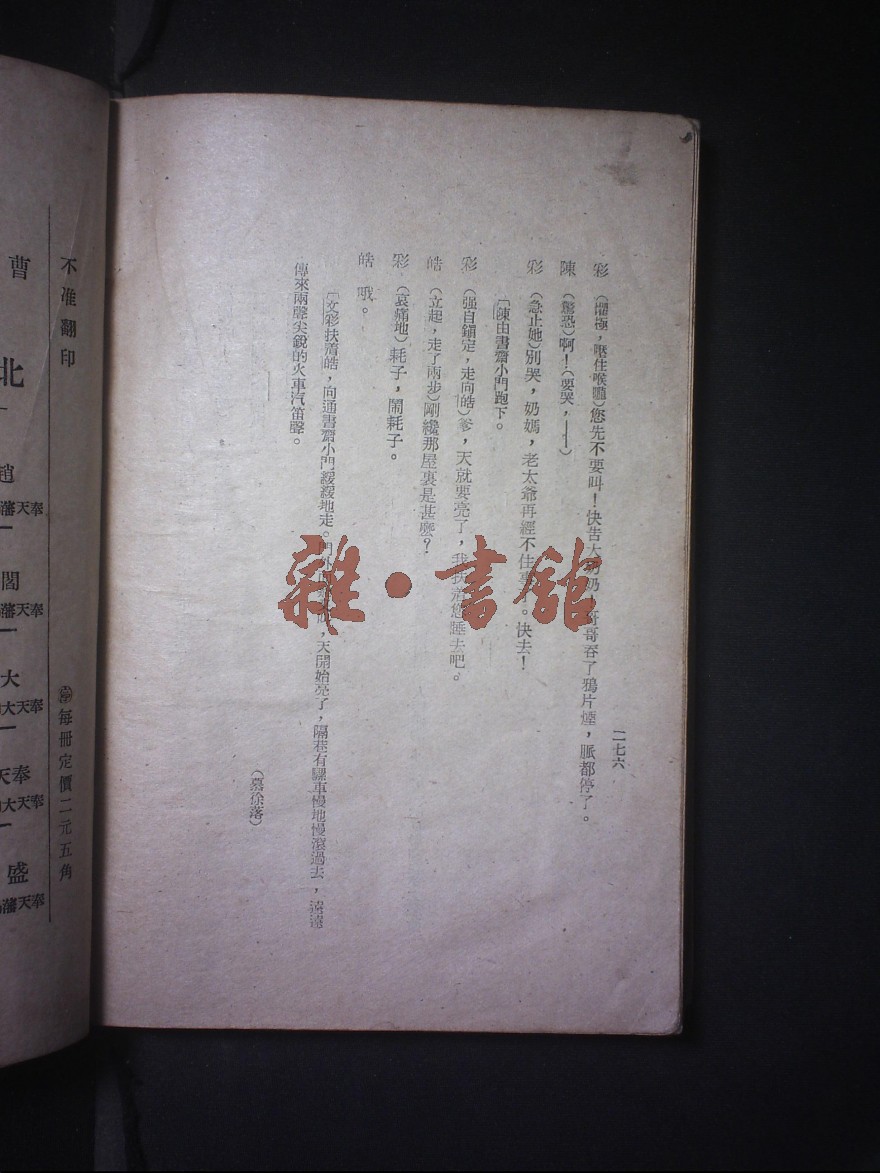 彩　(懼極，壓住喉嚨)您先不要叫！快告大奶奶！哥哥吞了鴉片煙，脈都停了。
陳　(驚恐)啊！(要哭，——)
彩　(急止她)別哭，奶媽，老太爺再經不住事了。快去！
「陳由書齋小門跑下。
彩　(强自鎮定，走向皓)爹，天就要亮了，我扶着您睡去吧。
皓　(立起，走了兩步)剛纔那屋裏是甚麽？
彩　(哀痛地)耗子，鬧耗子。
皓　哦。
「文彩扶着皓，向通書齋小門緩緩地走。門外，天開始亮了，隔巷有騾車慢地慢滾過去，遠遠
傳來兩聲尖銳的火車汽笛聲。
(幕徐落)
二七六
雜·書舘
不准翻印
每冊定價二元五角
曹
北
趙
藩天奉
閣
藩天奉
大
大天奉
天奉
大天奉
盛
藩天奉